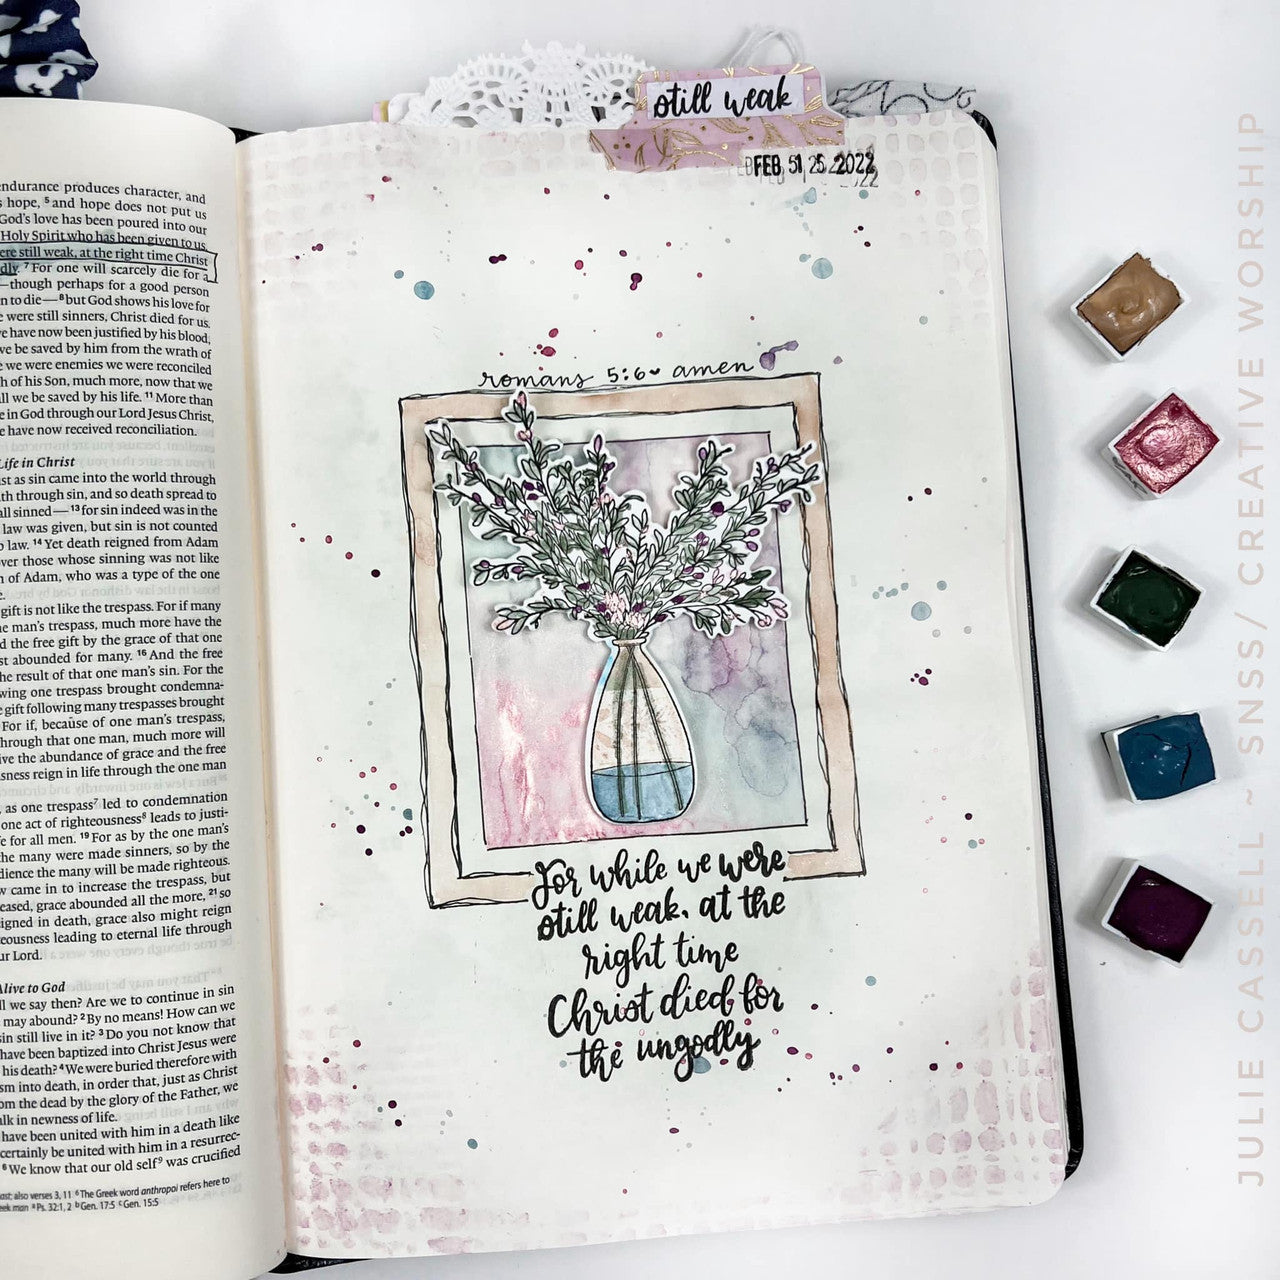 endurance produces character, and
hope, 5 and hope does not put us
God's love has been poured into our
Holy Spirit who has been given to us.
ere still weak, at the right time Christ
dly. 7 For one will scarcely die for a
—though perhaps for a good person
n to die— 8 but God shows his love for
e were still sinners, Christ died for us.
ve have now been justified by his blood,
we be saved by him from the wrath of
e we were enemies we were reconciled
h of his Son, much more, now that we
all we be saved by his life. 11 More than
e in God through our Lord Jesus Christ,
e have now received reconciliation.
Life in Christ
st as sin came into the world through
th through sin, and so death spread to
all sinned— 13 for sin indeed was in the
law was given, but sin is not counted
law. 14 Yet death reigned from Adam
over those whose sinning was not like
n of Adam, who was a type of the one
e.
gift is not like the trespass. For if many
e man's trespass, much more have the
d the free gift by the grace of that one
st abounded for many. 16 And the free
he result of that one man's sin. For the
wing one trespass brought condemna-
e gift following many trespasses brought
For if, because of one man's trespass,
hrough that one man, much more will
ive the abundance of grace and the free
sness reign in life through the one man
, as one trespass 7 led to condemnation
one act of righteousness 8 leads to justi-
e for all men. 19 For as by the one man's
he many were made sinners, so by the
dience the many will be made righteous.
w came in to increase the trespass, but
eased, grace abounded all the more, 21 so
igned in death, grace also might reign
eousness leading to eternal life through
ur Lord.
Alive to God
ll we say then? Are we to continue in sin
may abound? 2 By no means! How can we
sin still live in it? 3 Do you not know that
have been baptized into Christ Jesus were
his death? 4 We were buried therefore with
sm into death, in order that, just as Christ
om the dead by the glory of the Father, we
alk in newness of life.
have been united with him in a death like
certainly be united with him in a resurrec-
6 We know that our old self 9 was crucified
ast; also verses 3, 11 6 The Greek word anthropoi refers here to
eek man a Ps. 32:1, 2 b Gen. 17:5 c Gen. 15:5
still weak
FEB 25 2022
romans 5:6 amen
For while we were
still weak, at the
right time
Christ died for
the ungodly
JULIE CASSELL ~ SNSS/ CREATIVE WORSHIP